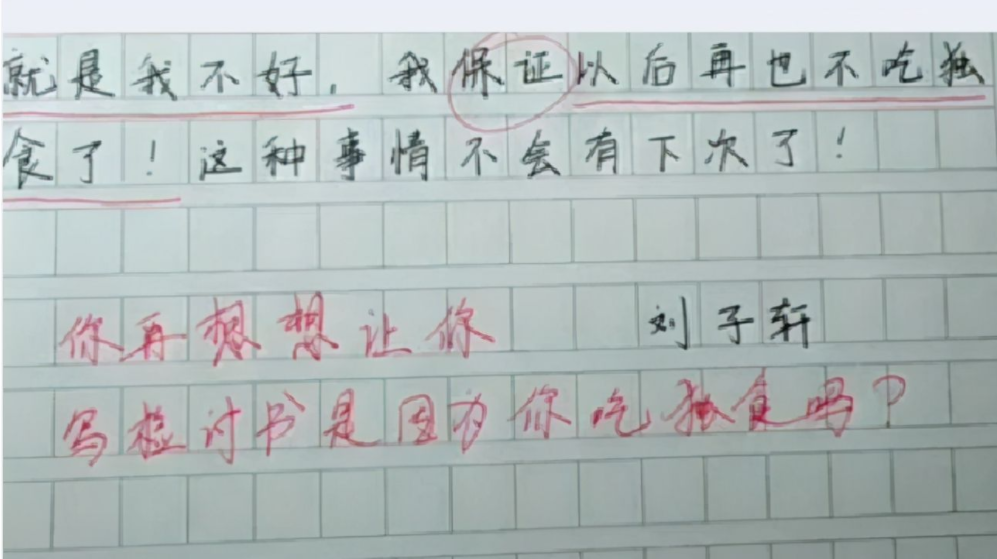 就是我不好，我保证以后再也不吃独
食了！这种事情不会有下次了！
你再想想让你
刘子轩
写检讨书是因为你吃独食吗？